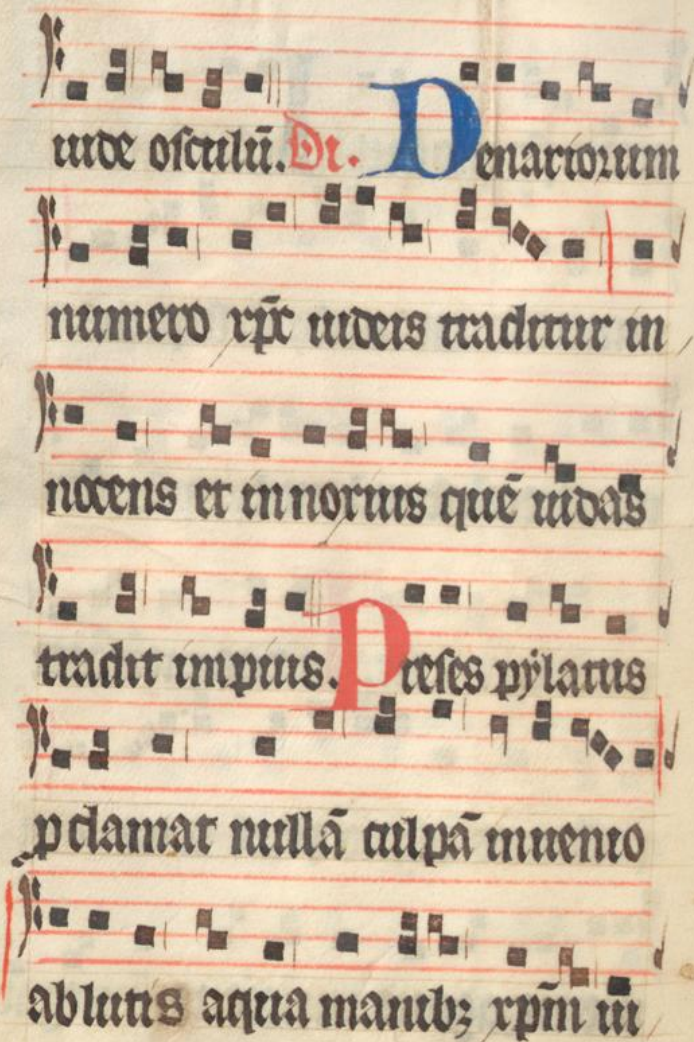 iude osculū. Di. Denariorum
numero xp̄c iudeis traditur in
nocens et innoxius quē iudas
tradit impius. Preses pylatus
ꝓclamat nullā culpā inuenio
ablutis aqua manibꝫ xp̄m iu